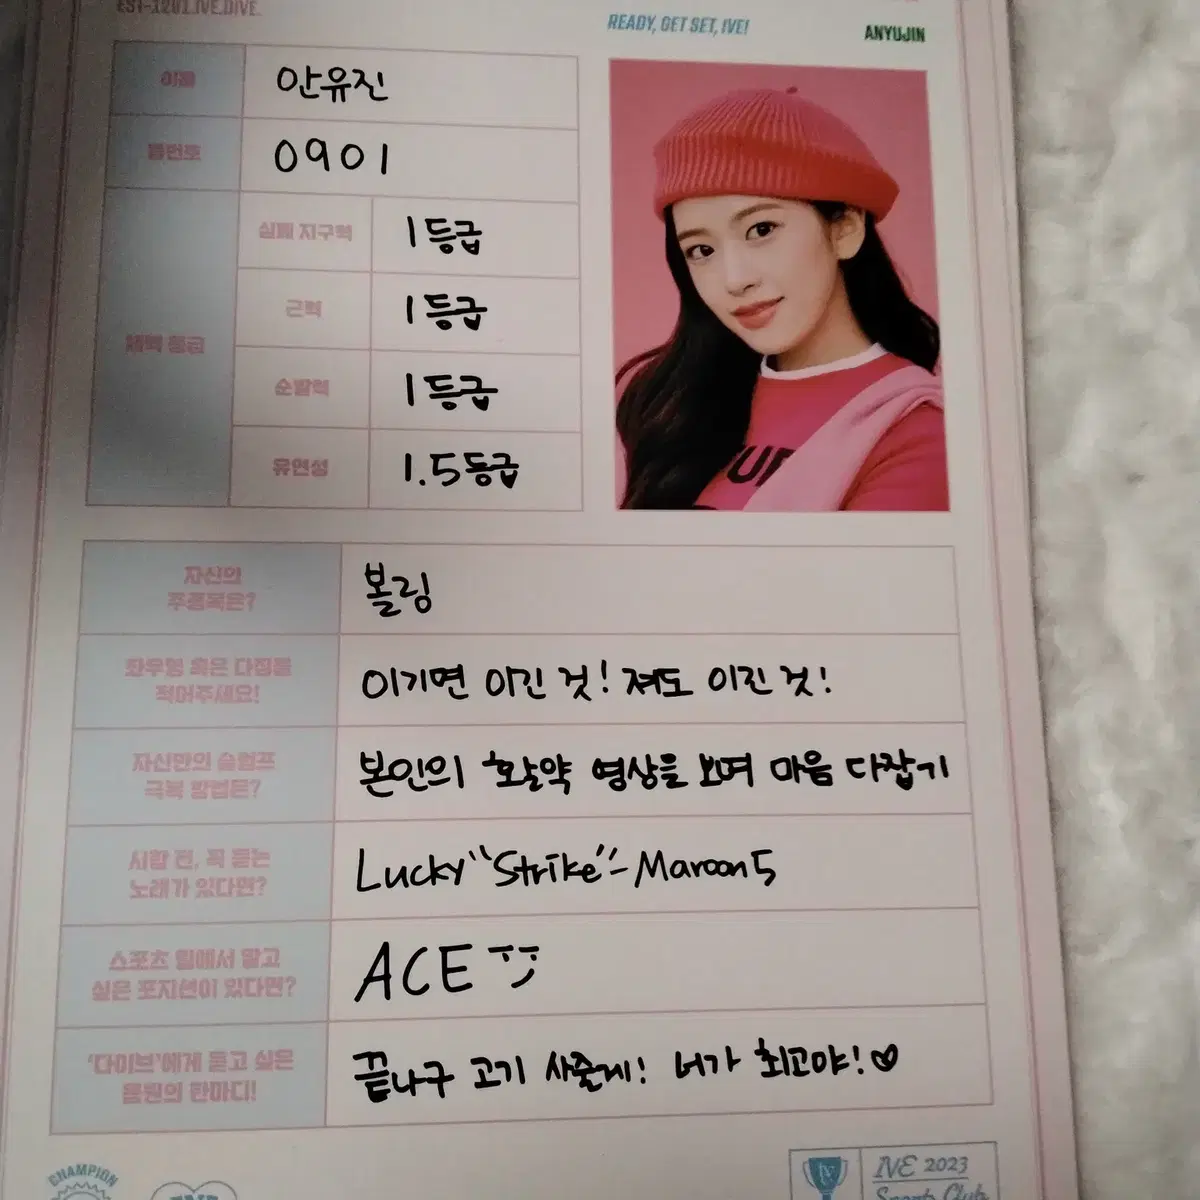 EST-1201.IVE.DIVE.
READY, GET SET, IVE!
ANYUJIN
이름
안유진
등번호
0901
체력 등급
심폐 지구력
1등급
근력
1등급
순발력
1등급
유연성
1.5등급
UP
자신의
주종목은?
볼링
좌우명 혹은 다짐을
적어주세요!
이기면 이긴 것! 져도 이긴 것!
자신만의 슬럼프
극복 방법은?
본인의 활약 영상을 보며 마음 다잡기
시합 전, 꼭 듣는
노래가 있다면?
Lucky "Strike"-Maroon5
스포츠 팀에서 맡고
싶은 포지션이 있다면?
ACE
'다이브'에게 듣고 싶은
응원의 한마디!
끝나구 고기 사줄게! 너가 최고야!♡
CHAMPION
IVE
IVE 2023
Sports Club